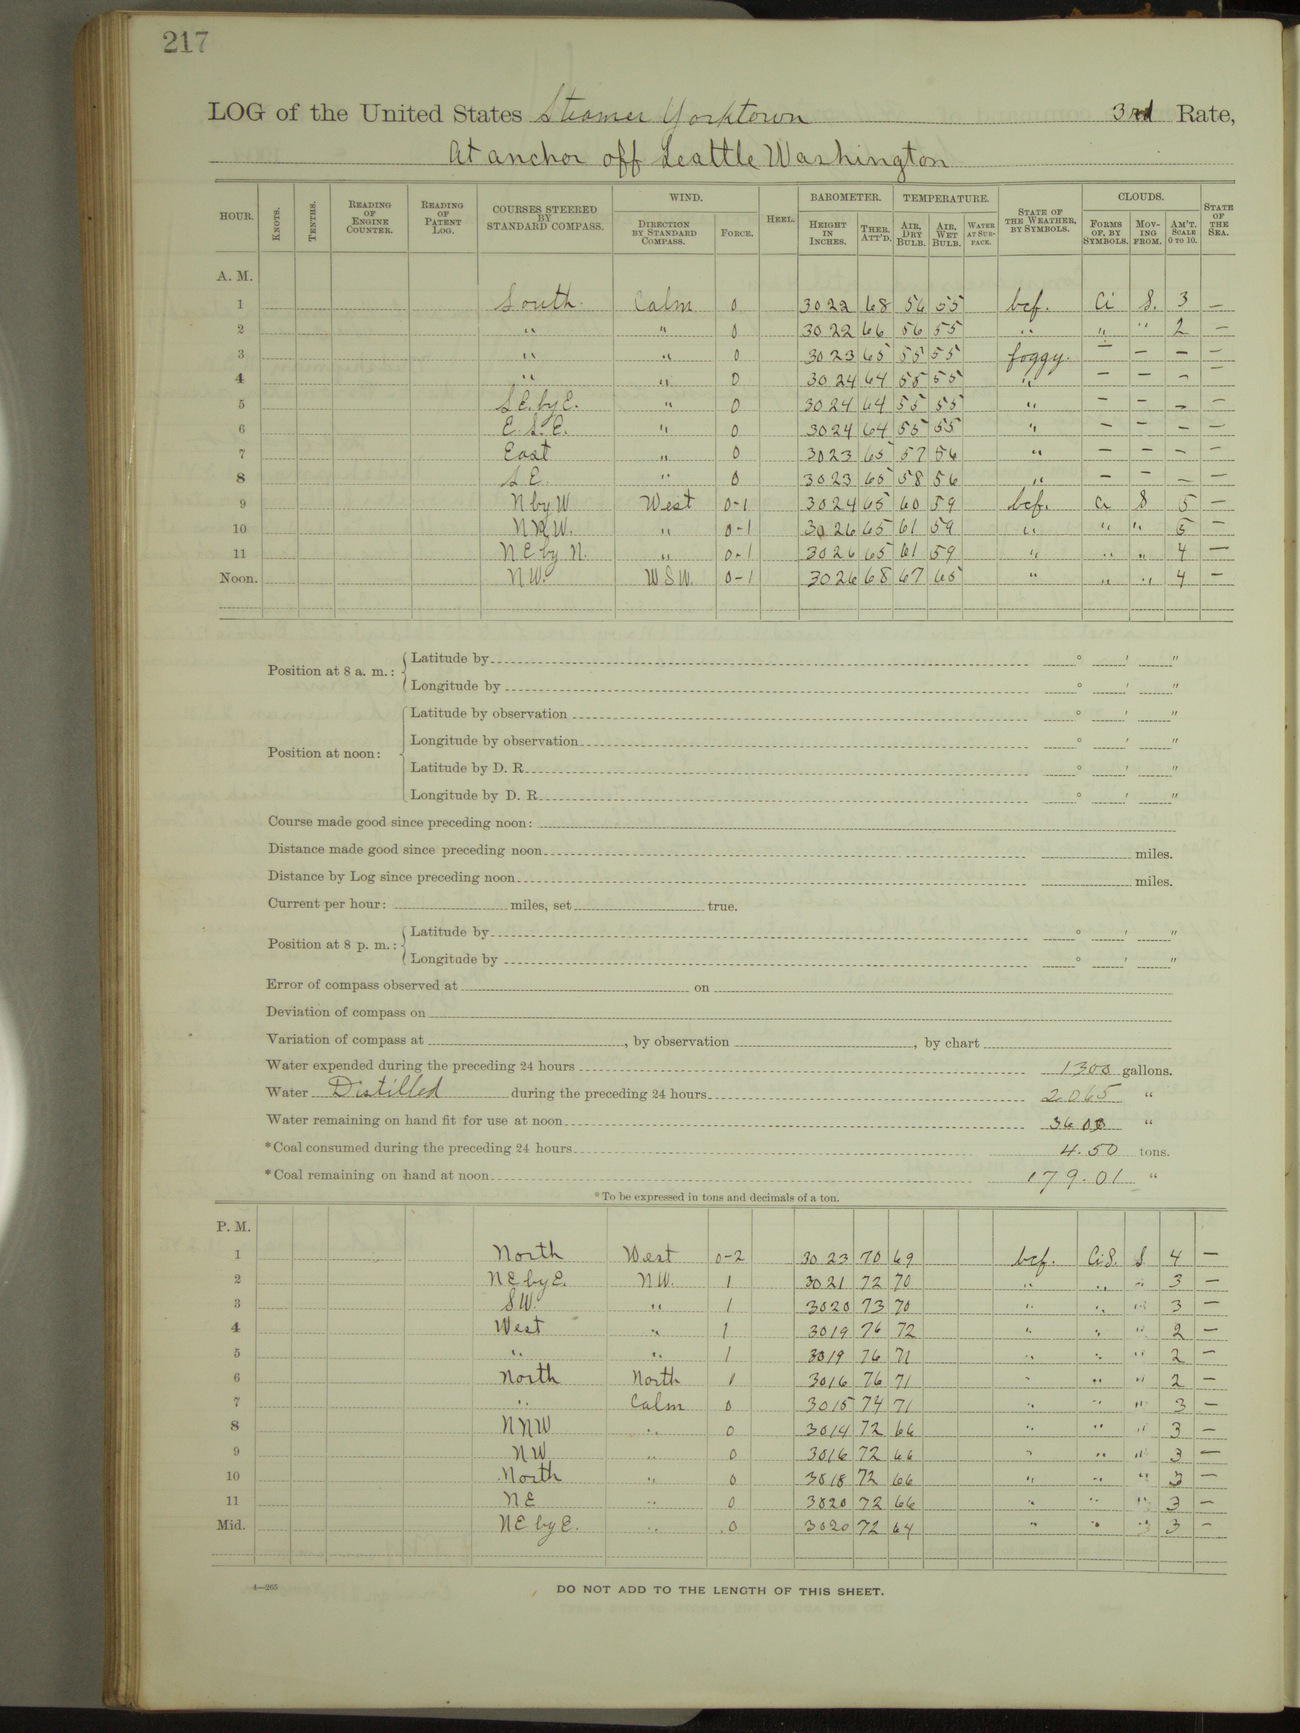 217
LOG of the United States Steamer Yorktown 3rd Rate,
At anchor off Seattle Washington
HOUR. KNOTS. TENTHS. READING OF ENGINE COUNTER. READING OF PATENT LOG. COURSES STEERED BY STANDARD COMPASS. WIND. DIRECTION BY STANDARD COMPASS. FORCE. HEEL. BAROMETER. HEIGHT IN INCHES. THER. ATT'D. TEMPERATURE. AIR, DRY BULB. AIR, WET BULB. WATER AT SURFACE. STATE OF THE WEATHER, BY SYMBOLS. CLOUDS. FORMS OF, BY SYMBOLS. MOVING FROM. AM'T. SCALE 0 TO 10. STATE OF THE SEA.
A. M.
1 South. Calm 0 30 22 68 56 55 bcf. Ci S. 3 —
2 " " 0 30 22 66 56 55 " " " 2 —
3 " " 0 30 23 65 55 55 foggy. — — — —
4 " " 0 30 24 64 55 55 " — — — —
5 S.E. by E. " 0 30 24 64 55 55 " — — — —
6 E. S. E. " 0 30 24 64 55 55 " — — — —
7 East " 0 30 23 65 57 56 " — — — —
8 S.E. " 0 30 23 65 58 56 " — — — —
9 N by W West 0-1 30 24 65 60 59 bcf. Ci S 5 —
10 NNW. " 0-1 30 26 65 61 59 " " " 5 —
11 NE by N. " 0-1 30 26 65 61 59 " " " 4 —
Noon. NW. WSW. 0-1 30 26 68 67 65 " " " 4 —
Position at 8 a. m.: Latitude by ° ' "
Longitude by ° ' "
Position at noon: Latitude by observation ° ' "
Longitude by observation ° ' "
Latitude by D. R. ° ' "
Longitude by D. R. ° ' "
Course made good since preceding noon:
Distance made good since preceding noon miles.
Distance by Log since preceding noon miles.
Current per hour: miles, set true.
Position at 8 p. m.: Latitude by ° ' "
Longitude by ° ' "
Error of compass observed at on
Deviation of compass on
Variation of compass at , by observation , by chart
Water expended during the preceding 24 hours 1300 gallons.
Water Distilled during the preceding 24 hours 2065 "
Water remaining on hand fit for use at noon 3600 "
* Coal consumed during the preceding 24 hours 4.50 tons.
* Coal remaining on hand at noon 179.01 "
* To be expressed in tons and decimals of a ton.
P. M.
1 North West 0-2 30 23 70 69 bcf. Ci.S. S. 4 —
2 NE by E. NW. 1 30 21 72 70 " " " 3 —
3 SW. " 1 30 20 73 70 " " " 3 —
4 West " 1 30 19 76 72 " " " 2 —
5 " " 1 30 19 76 71 " " " 2 —
6 North North 1 30 16 76 71 " " " 2 —
7 " Calm 0 30 15 74 71 " " " 3 —
8 NNW " 0 30 14 72 66 " " " 3 —
9 NW " 0 30 16 72 66 " " " 3 —
10 North " 0 30 18 72 66 " " " 3 —
11 NE " 0 30 20 72 66 " " " 3 —
Mid. NE by E. " 0 30 20 72 64 " " " 3 —
4—265
DO NOT ADD TO THE LENGTH OF THIS SHEET.